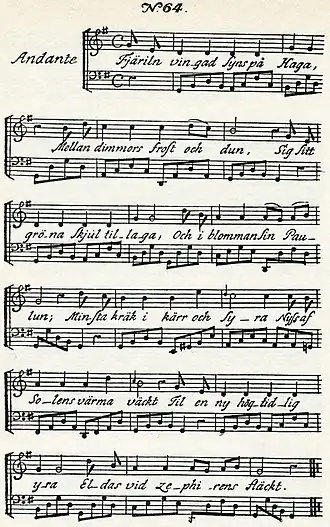 No. 64.
Andante
Fjäriln vin-gad syns på Haga,
Mellan dimmors frost och dun, Sig sitt
grö-na skjul til-laga, Och i blomman sin Pau-
lun; Minsta kräk i kärr och sy-ra Nyss af
So-lens värma väckt Til en ny hög-tid-lig
y-ra El-das vid ze-phi-rens fläckt.